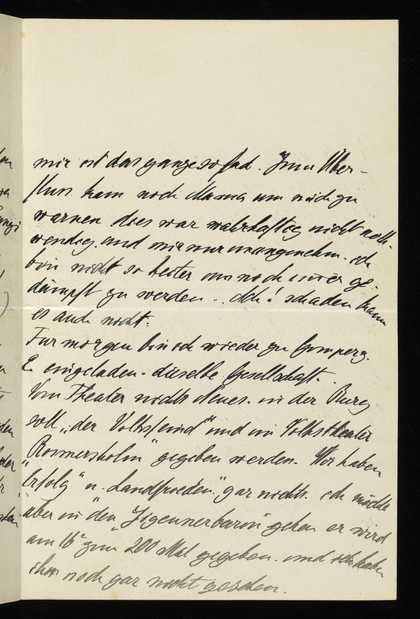 mir ist das ganze so fad. Zum Über-
fluss kam noch Mama um mich zu
warnen dies war wahrhaftig nicht noth-
wendig und mir nur unangenehm. ich
bin nicht so heiter um noch immer ge-
dämpft zu werden. schaden kann
es auch nicht.
Für morgen bin ich wieder zu Gomperz
E eingeladen. dieselbe Gesellschaft.
Vom Theater nichts neues. in der Burg
soll „der Volksfeind" und im Volkstheater
„Rosmersholm" gegeben werden. Wir haben
„Erfolg" u. „Landfrieden" gar nichts. ich möchte
aber in den „Zigeunerbaron" gehen er wird
am 16ten zum 200 Mal gegeben. und ich habe
ihn noch gar nicht gesehen.